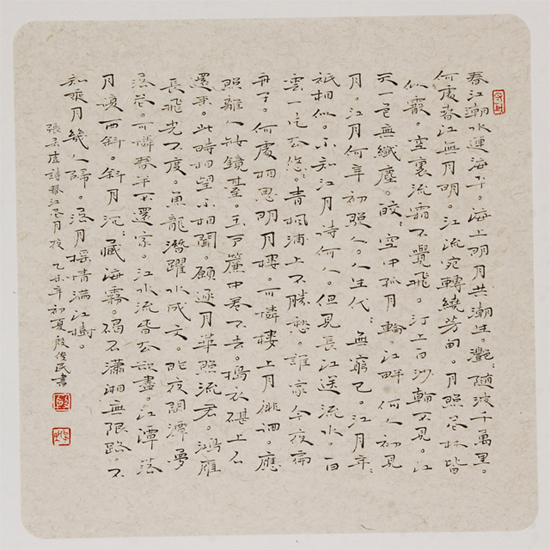 春江潮水連海平。海上明月共潮生。灧:隨波千萬里。
何處春江無月明。江流宛轉繞芳甸。月照花林皆
似霰。空裏流霜不覺飛。汀上白沙看不見。江
天一色無纖塵。皎:空中孤月輪。江畔何人初見
月。江月何年初照人。人生代:無窮已。江月年:
祇相似。不知江月待何人。但見長江送流水。白
雲一片去悠:。青楓浦上不勝愁。誰家今夜扁
舟子。何處相思明月樓。可憐樓上月徘徊。應
照離人妝鏡臺。玉戶簾中卷不去。搗衣碪上拂
還來。此時相望不相聞。願逐月華照流君。鴻雁
長飛光不度。魚龍潛躍水成文。昨夜閒潭夢
落花。可憐春半不還家。江水流春去欲盡。江潭落
月復西斜。斜月沉:藏海霧。碣石瀟湘無限路。不
知乘月幾人歸。落月搖情滿江樹。
張若虛詩春江花月夜 乙未年初夏殷俊民書